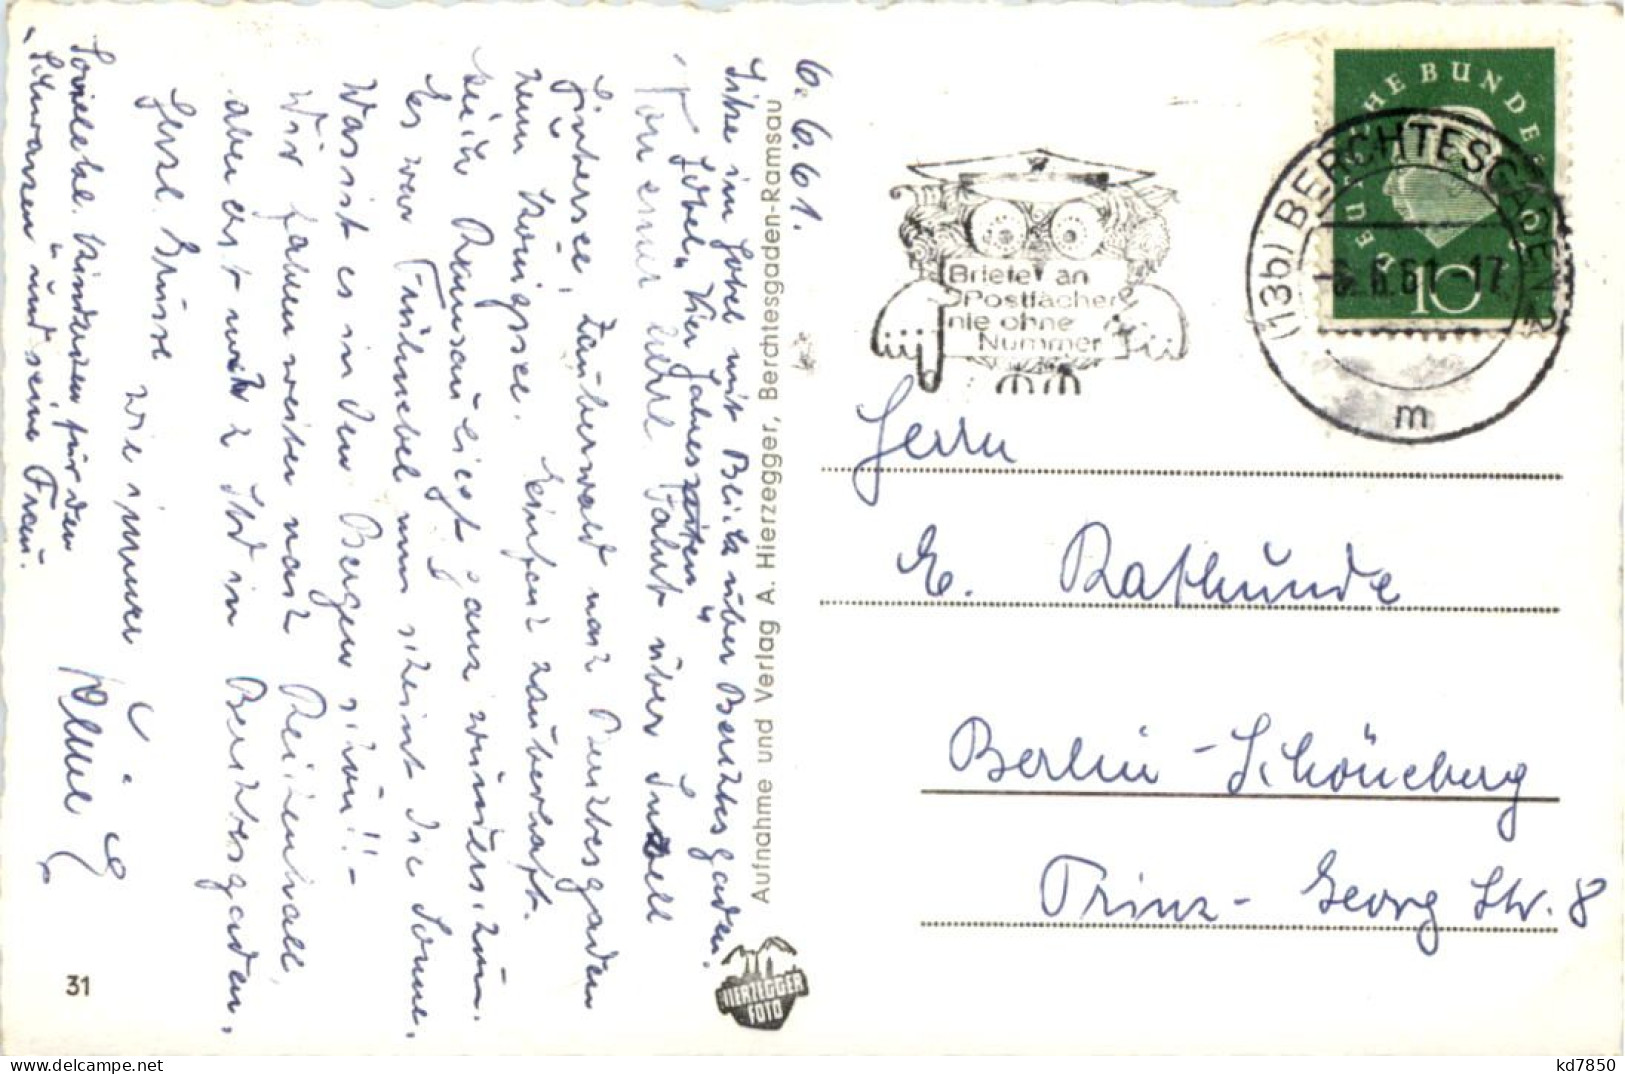 6. 6. 61.
Sitze im Hotel mit Blick über Berchtesgaden.
Hotel „Vier Jahreszeiten"
Von einer Fahrt über Inzell
Hintersee, Zauberwald nach Berchtesgaden
zum Königssee. Einfach zauberhaft.
Auch Ramsau liegt ganz wunderschön.
Es war Frühnebel nun scheint die Sonne.
Was ist es in den Bergen schön!! -
Wir fahren weiter nach Reichenhall,
aber erst noch in Berchtesgaden.
Herzl. Grüsse wie immer
für den
„ und seine Frau.
31
Aufnahme und Verlag A. Hierzegger, Berchtesgaden-Ramsau
HIERZEGGER
FOTO
Briefe an
Postfächer
nie ohne
Nummer
DEUTSCHE BUNDESPOST
10
(13b) BERCHTESGADEN 2
6. 6. 61 - 17
m
Herrn
E. Rathunde
Berlin - Schöneberg
Prinz - Georg Str. 8
kd7850